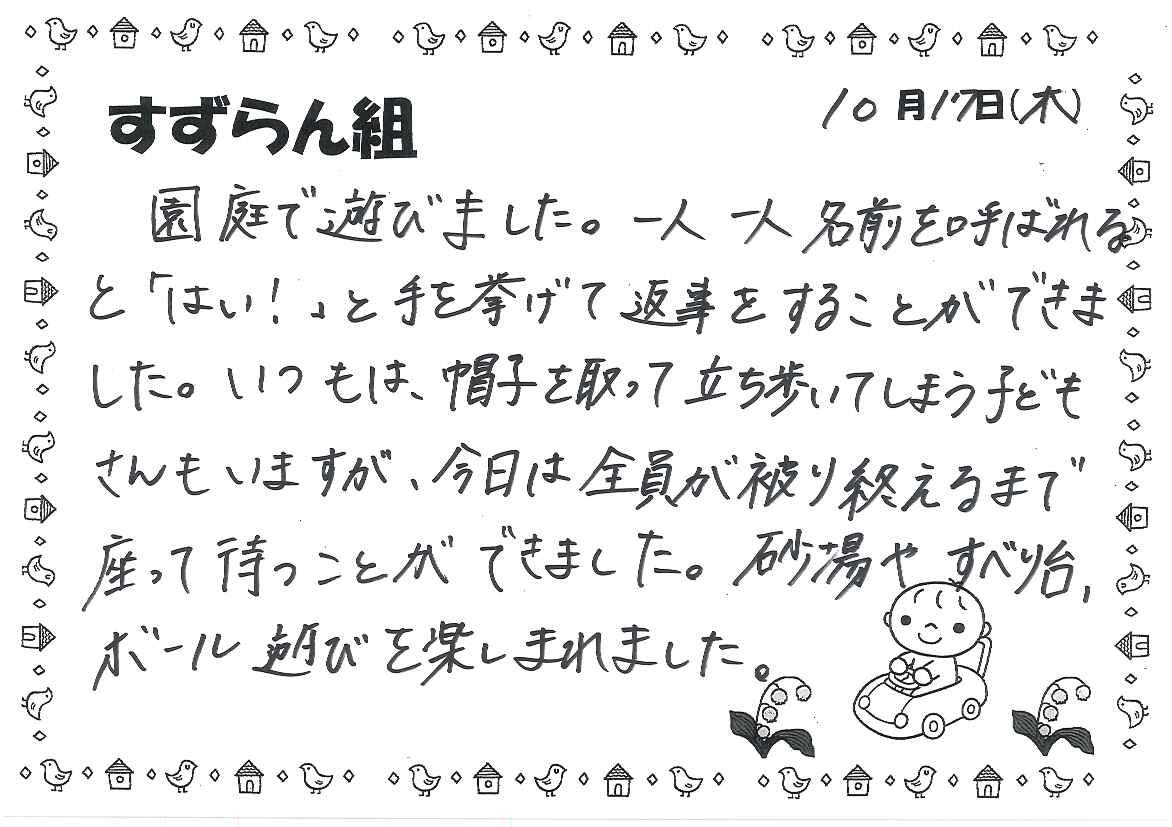 すずらん組
10月17日(木)
園庭で遊びました。一人一人名前を呼ばれる
と「はい!」と手を挙げて返事をすることができま
した。いつもは、帽子を取って立ち歩いてしまう子ども
さんもいますが、今日は全員が被り終えるまで
座って待つことができました。砂場やすべり台,
ボール遊びを楽しまれました。